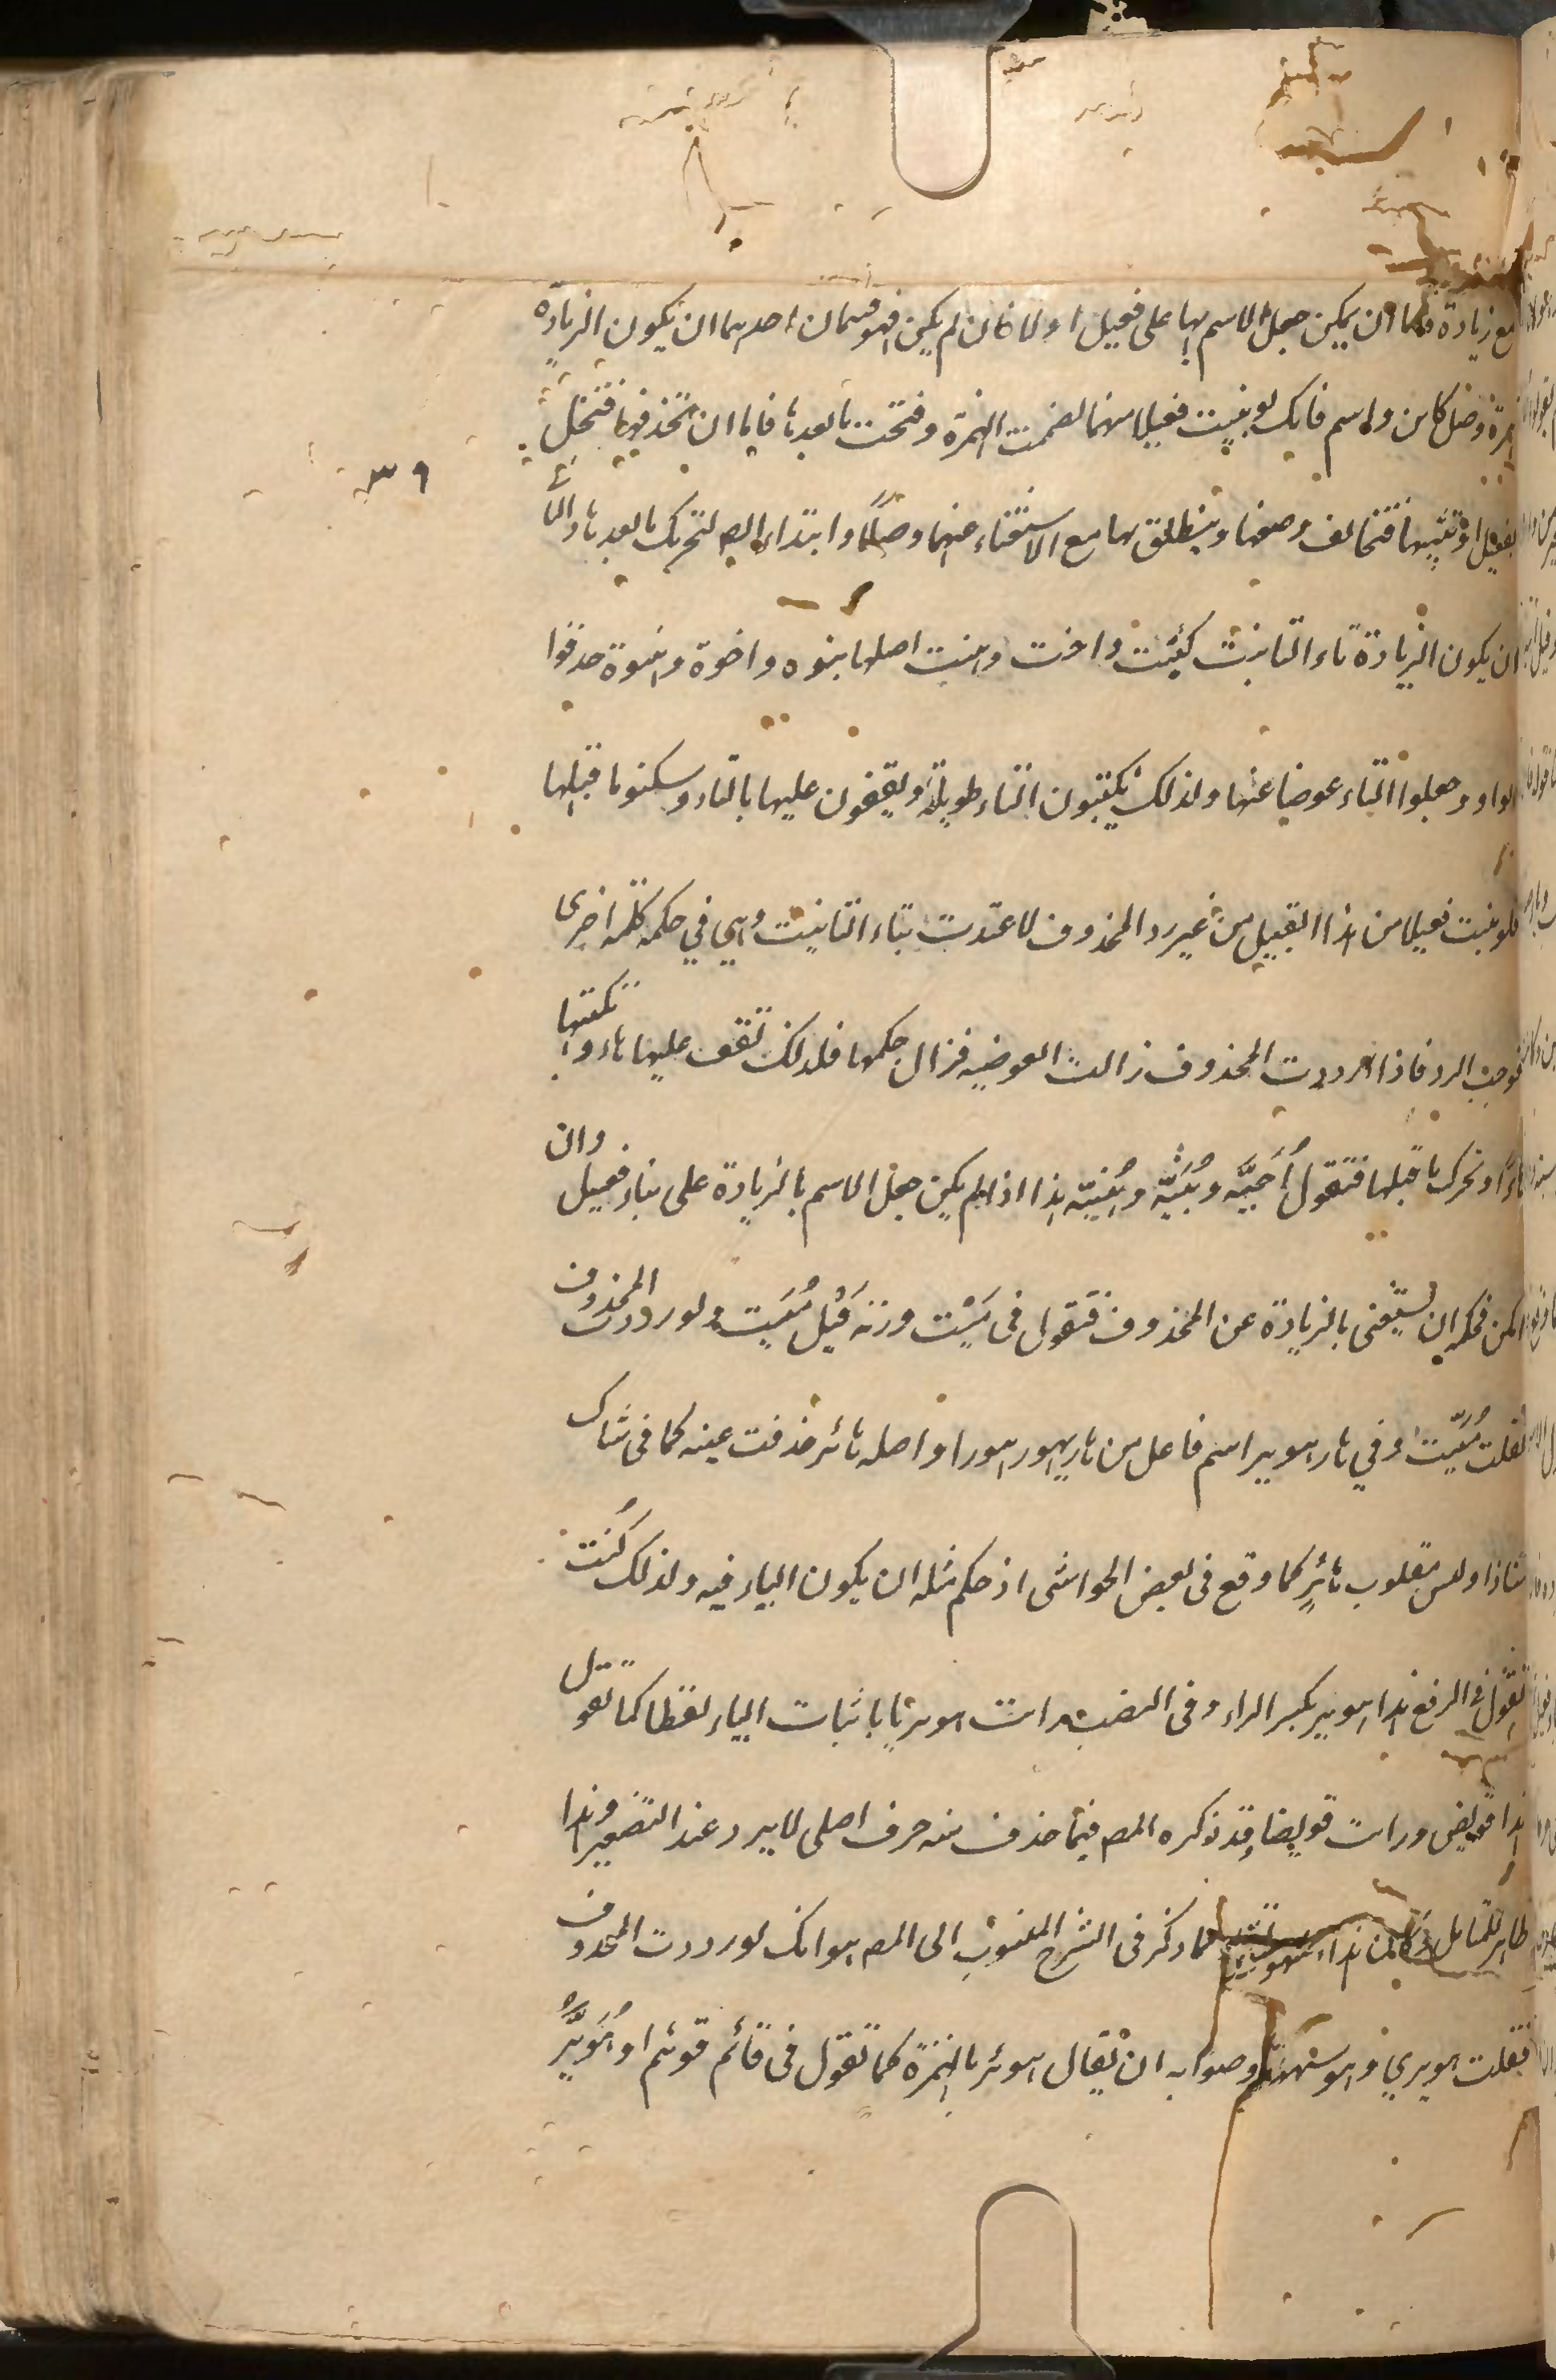 مع زيادة فاما ان يمكن جعل الاسم بها على فعيل اولا فان لم يكن فهو قسمان احدهما ان يكون الزيادة
همزة وصل كابن واسم فانك لو بنيت فعيلا منهما لضممت الهمزة وفتحت ما بعدها فاما ان تحذفها فتخل
بفعيل او تثبتها فتخالف وضعها وينطلق بها مع الاستغناء عنها وصلا وابتداء لتحرك ما بعدها والثاني
ان يكون الزيادة تاء التانيث كبنت واخت وهنت اصلها بنوه واخوة وهنوة حذفوا
الواو وجعلوا التاء عوضا عنها ولذلك يكتبون التاء طويلة ويقفون عليها بالتاء وسكنوا ما قبلها
فلو بنيت فعيلا من هذا القبيل من غير رد المحذوف لاعتدت بتاء التانيث وهي في حكم كلمة اخرى
فوجب الرد فاذا رددت المحذوف زالت العوضيه فزال حكمها فلذلك تقف عليها هاء وتكتبها
هاءً وتحرك ما قبلها فتقول اُخَيَّه وبُنَيَّه وهُنيّه هذا اذا لم يكن جعل الاسم بالزيادة على بناء فعيل وان
امكن فحكمه ان يستغنى بالزيادة عن المحذوف فتقول في مَيْت وزنه فَيْل مُيَيت ولو رددت المحذوف
لقلت مُيَيّت وفي هار هوير اسم فاعل من هار يهور هورا واصله هائر حذفت عينه كما في شاك
شاذا وليس مقلوب هائر كما وقع في بعض الحواشي اذ حكم مثله ان يكون الياء فيه ولذلك كنت
تقول في الرفع هذا هوير بكسر الراء وفي النصب رايت هويريا باثبات الياء لفظا كما تقول
هذا قويض ورايت قويضا وقد ذكره المص فيما حذف منه حرف اصلي لا يرد عند التصغير وهذا
ظاهر للمتامل كما ذكر في الشرح المنسوب الى المص هو انك لو رددت المحذوف
فقلت هويري وهو سهو وصوابه ان يقال هوئر بالهمزة كما تقول في قائم قوئم او هُوَيِّرٌ
٣٩